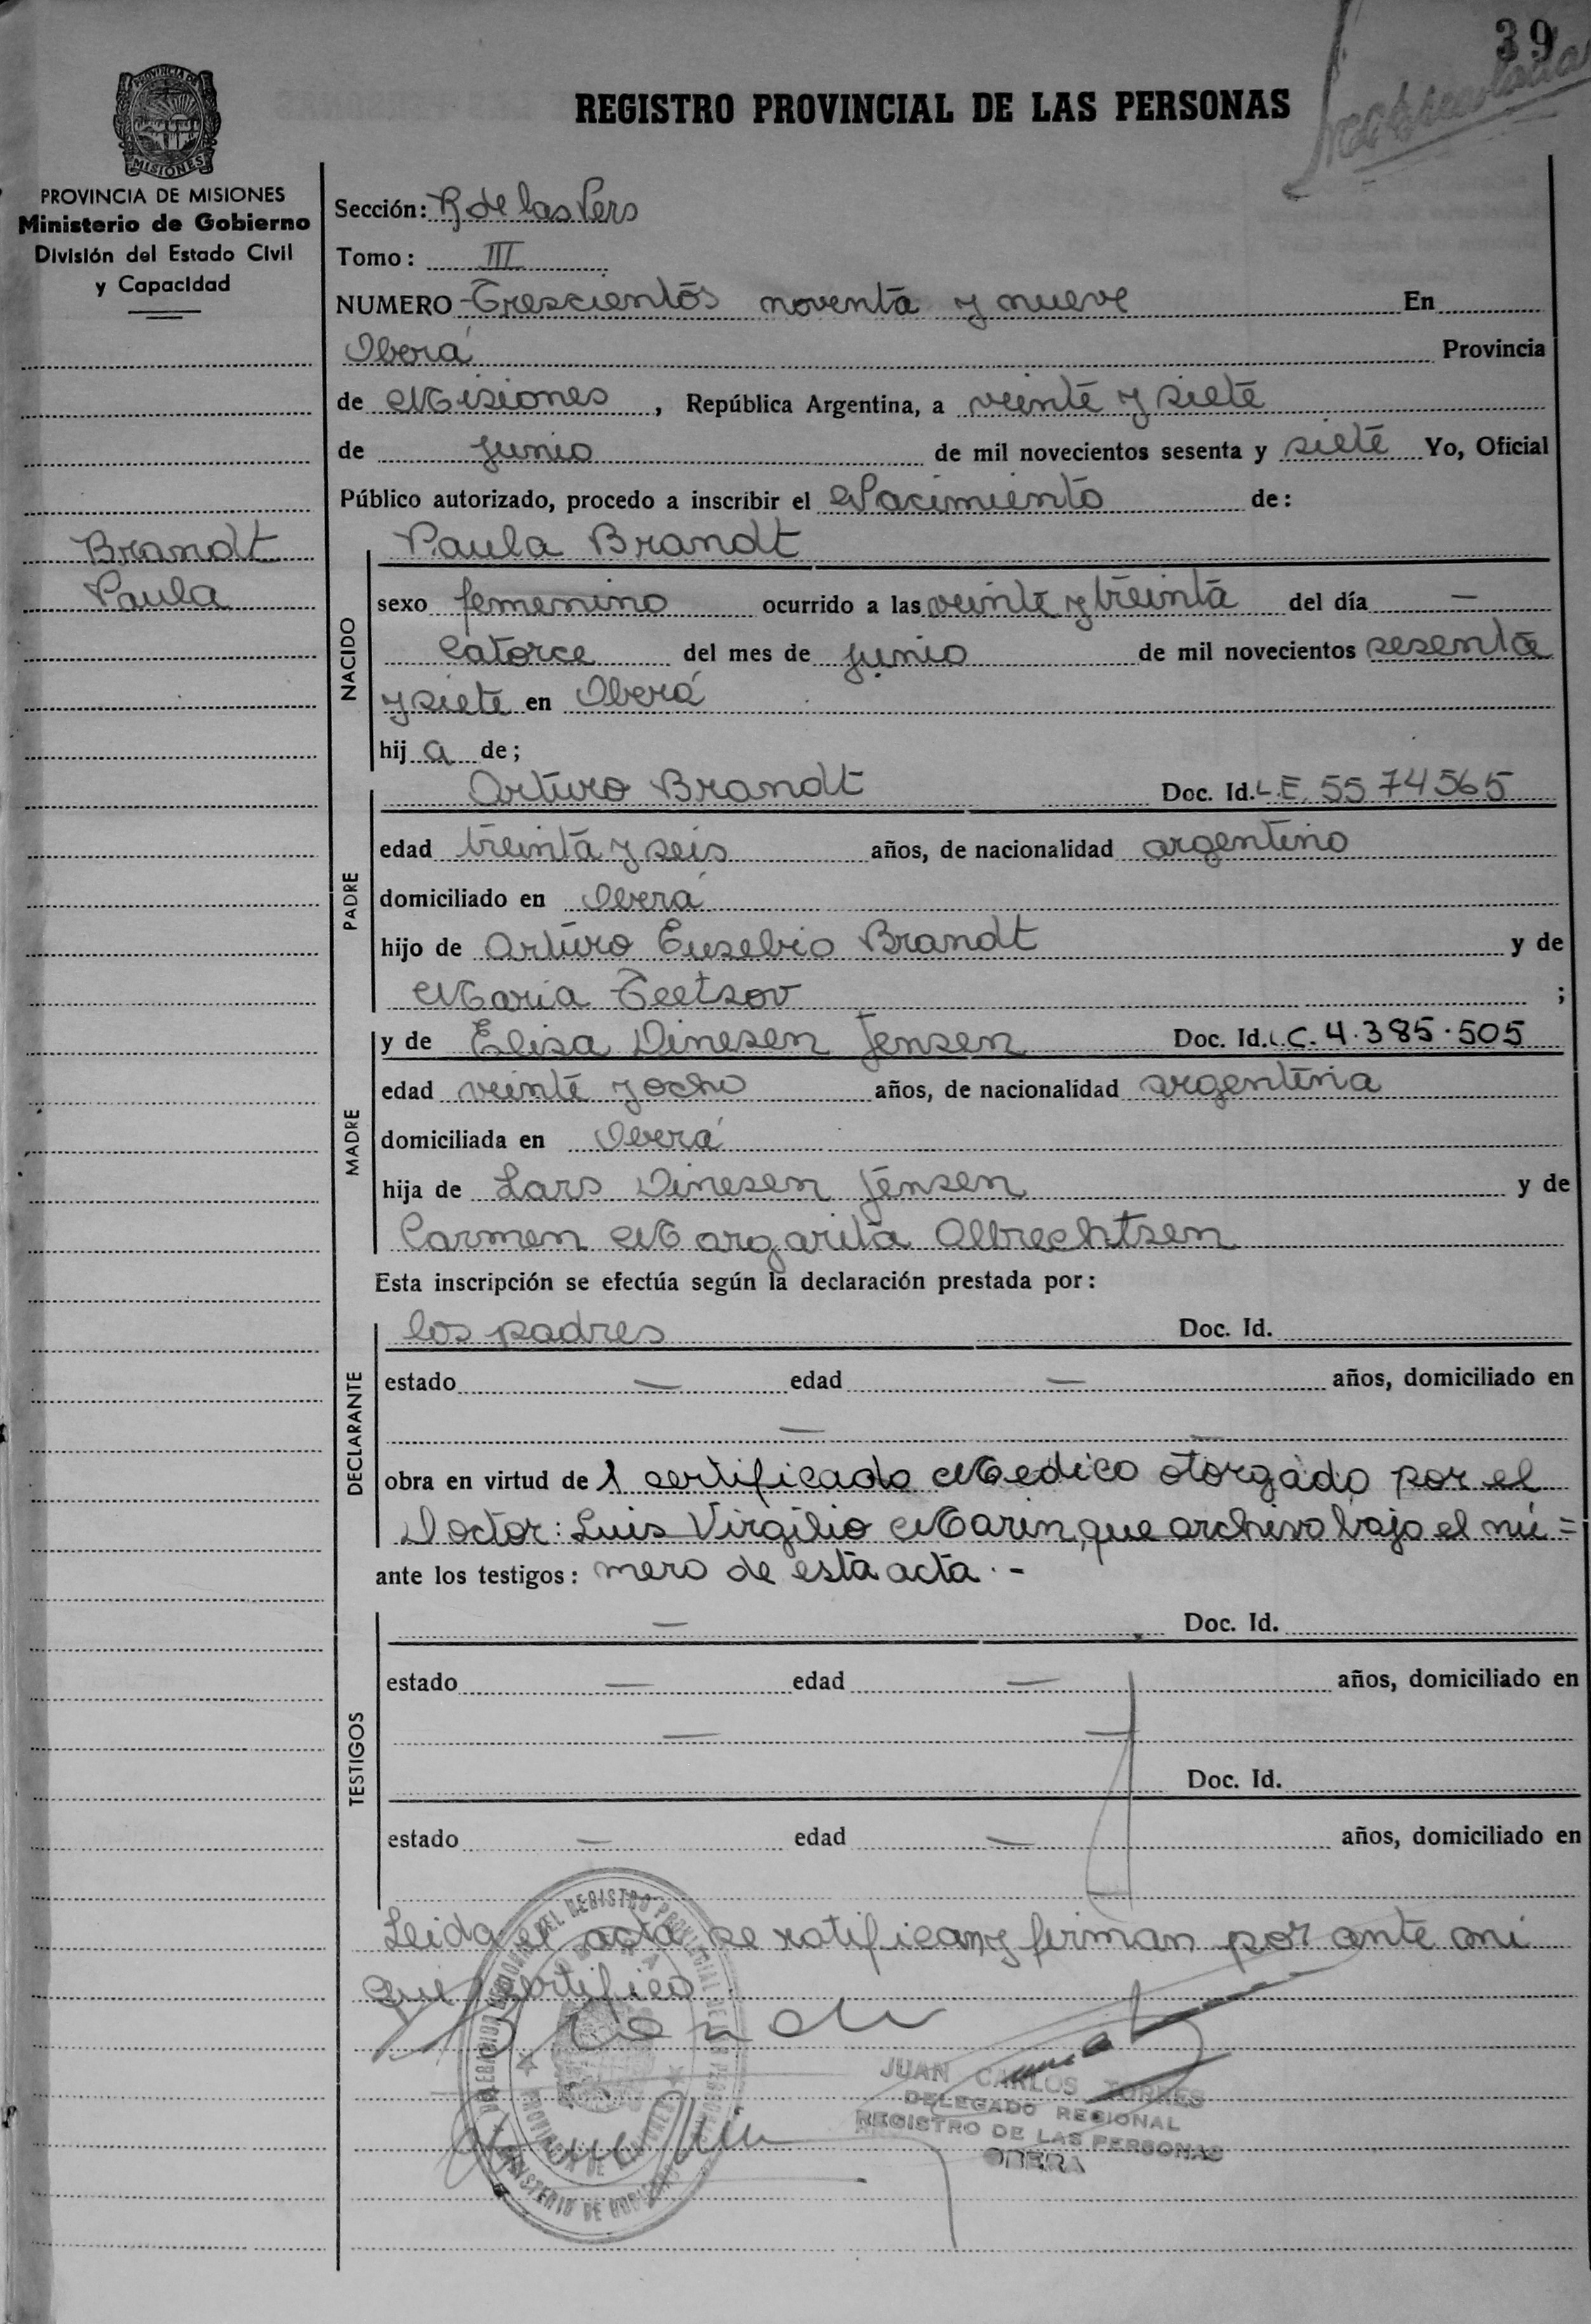 39
REGISTRO PROVINCIAL DE LAS PERSONAS
MISIONES
PROVINCIA DE MISIONES
Ministerio de Gobierno
División del Estado Civil
y Capacidad
Brandt
Paula
Sección: R de las Pers
Tomo: III
NUMERO Trescientos noventa y nueve En
Oberá Provincia
de Misiones, República Argentina, a veinte y siete
de junio de mil novecientos sesenta y siete Yo, Oficial
Público autorizado, procedo a inscribir el Nacimiento de:
NACIDO
Paula Brandt
sexo femenino ocurrido a las veinte y treinta del día —
catorce del mes de junio de mil novecientos sesenta
y siete en Oberá
hij a de;
PADRE
Arturo Brandt Doc. Id. L.E. 5574565
edad treinta y seis años, de nacionalidad argentino
domiciliado en Oberá
hijo de Arturo Eusebio Brandt y de
Maria Teetsov ;
MADRE
y de Elisa Dinesen Jensen Doc. Id. L.C. 4.385.505
edad veinte y ocho años, de nacionalidad argentina
domiciliada en Oberá
hija de Lars Dinesen Jensen y de
Carmen Margarita Albrechtsen
Esta inscripción se efectúa según la declaración prestada por:
DECLARANTE
los padres Doc. Id.
estado — edad — años, domiciliado en
— —
obra en virtud de 1 certificado Medico otorgado por el
Doctor: Luis Virgilio Marin, que archivo bajo el nú=
ante los testigos: mero de esta acta.-
TESTIGOS
— Doc. Id.
estado — edad — años, domiciliado en
— —
Doc. Id.
estado — edad — años, domiciliado en
Leida el acta se ratifican y firman por ante mi
que certifico
JUAN CARLOS TORRES
DELEGADO REGIONAL
REGISTRO DE LAS PERSONAS
OBERA